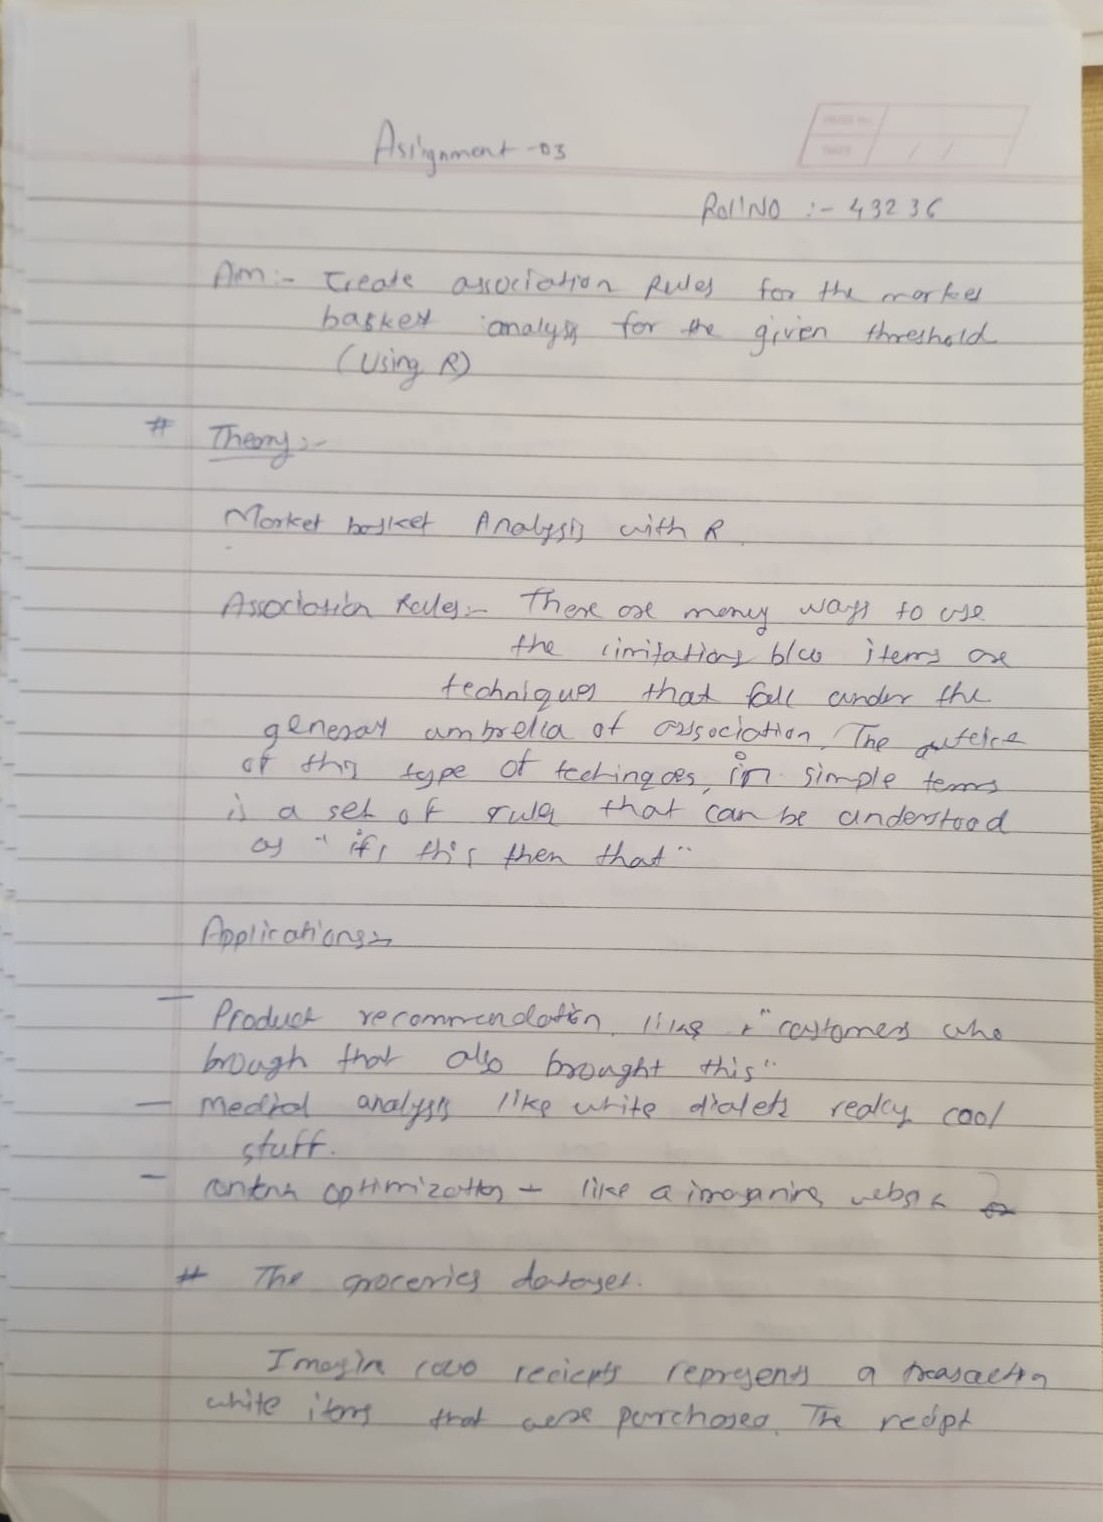 Assignment -03
PAGE No.
DATE / /
Roll NO :- 43236
Aim:- Create association Rules for the market
basket analysis for the given threshold
(Using R)
# Theory:-
Market basket Analysis with R
Association Rules:- There are many ways to use
the limitations b/w items are
techniques that fall under the
general umbrella of association. The
of this type of techinques, in simple terms
is a set of rules that can be understood
as "if, this then that"
Applications:-
- Product recommendation, like "customers who
brough that also brought this"
- Medial analysis like white dialets realcy cool
stuff.
- optimization - like a imaganine
# The groceries dataset.
Imagin reciepts represents a
white items that were purrchosed. The recipt